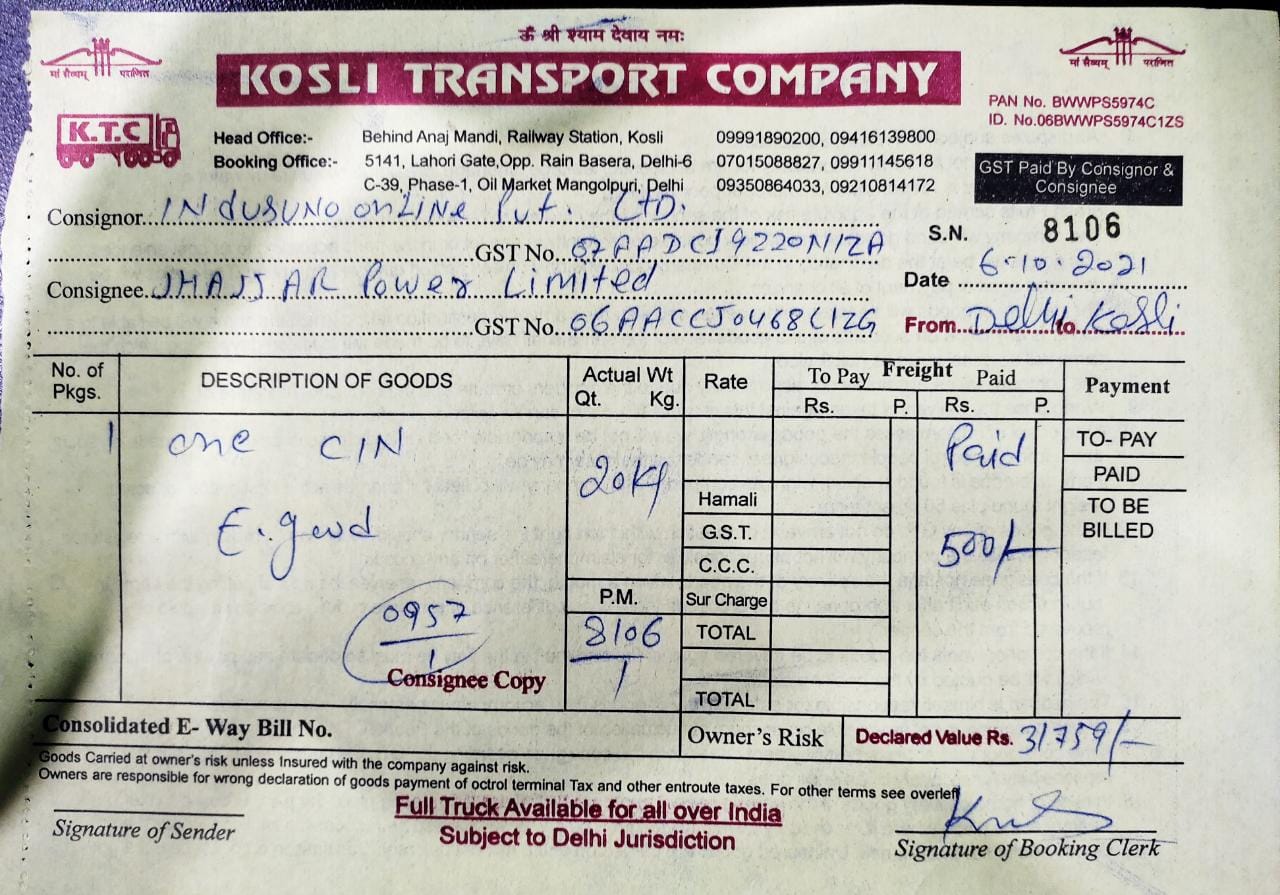 ॐ श्री श्याम देवाय नमः
KOSLI TRANSPORT COMPANY
K.T.C
PAN No. BWWPS5974C
ID. No.06BWWPS5974C1ZS
Head Office:- Behind Anaj Mandi, Railway Station, Kosli 09991890200, 09416139800
Booking Office:- 5141, Lahori Gate,Opp. Rain Basera, Delhi-6 07015088827, 09911145618
C-39, Phase-1, Oil Market Mangolpuri, Delhi 09350864033, 09210814172
GST Paid By Consignor &
Consignee
Consignor INdusuNo onLine Pvt. LTD.
S.N. 8106
GST No. 07AADCI9220N1ZA
Date 6-10-2021
Consignee JHAJJAR Power Limited
GST No. 06AACCJ0468L1ZG
From Delhi to Kosli
No. of Pkgs. DESCRIPTION OF GOODS Actual Wt Qt. Kg. Rate Freight To Pay Rs. P. Paid Rs. P. Payment
1 one CIN 20Kg Paid TO- PAY
PAID
E. good Hamali TO BE BILLED
G.S.T. 500/-
C.C.C.
P.M. Sur Charge
0957 8106 TOTAL
1 1
Consignee Copy
TOTAL
Consolidated E- Way Bill No. Owner's Risk Declared Value Rs. 31759/-
Goods Carried at owner's risk unless Insured with the company against risk.
Owners are responsible for wrong declaration of goods payment of octrol terminal Tax and other entroute taxes. For other terms see overleft
Full Truck Available for all over India
Signature of Sender Subject to Delhi Jurisdiction Signature of Booking Clerk